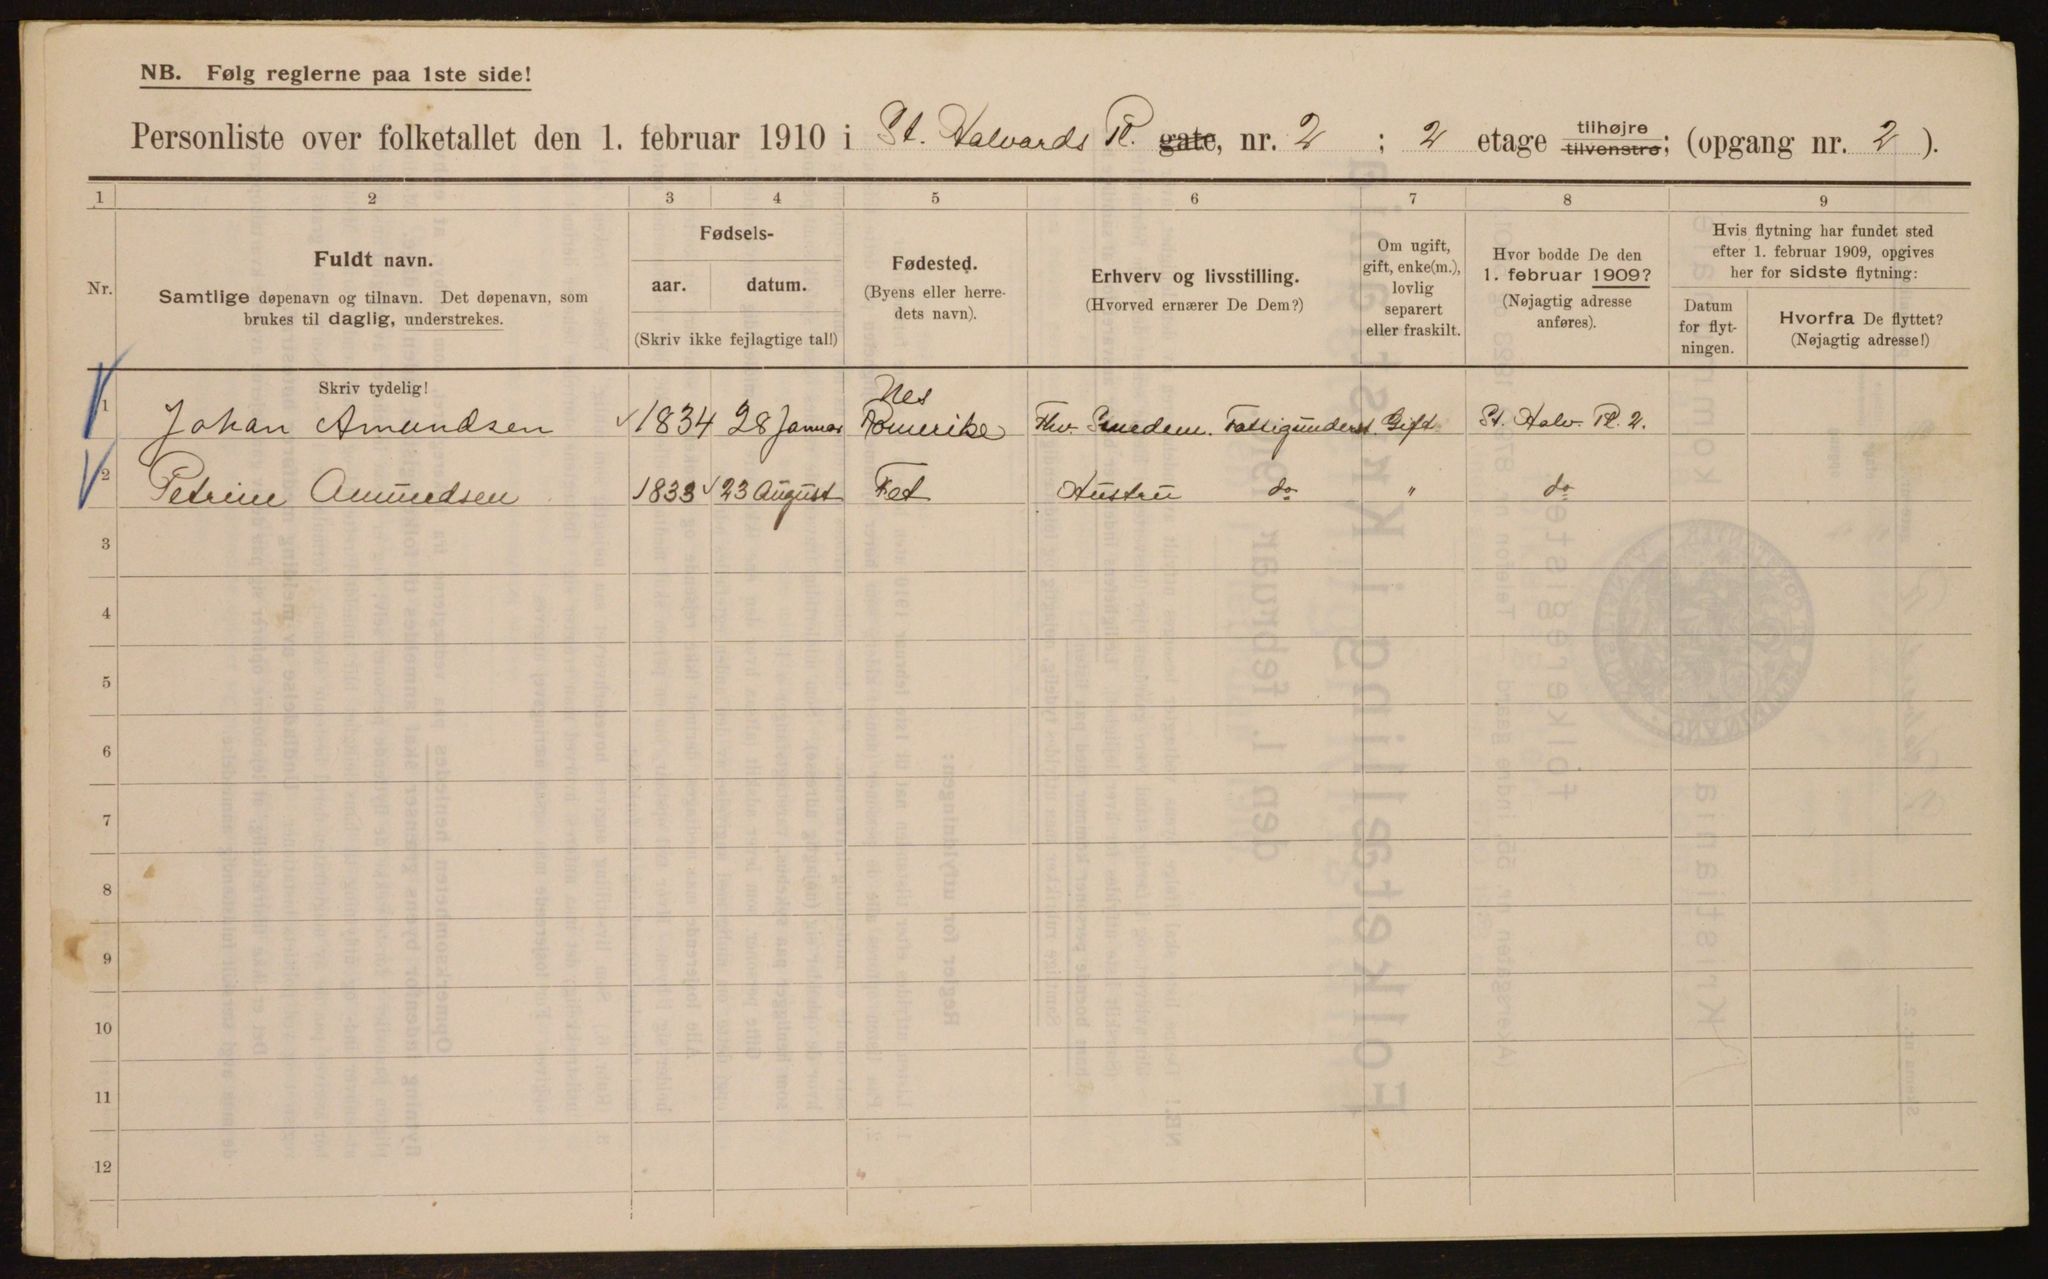 NB. Følg reglerne paa 1ste side!
Personliste over folketallet den 1. februar 1910 i St. Halvards Pl. gate, nr. 2 ; 2 etage tilhøjre tilvenstre; (opgang nr. 2 ).
1 2 3 4 5 6 7 8 9
Nr.
Fuldt navn.
Samtlige døpenavn og tilnavn. Det døpenavn, som
brukes til daglig, understrekes.
Fødsels-
aar. datum.
(Skriv ikke fejlagtige tal!)
Fødested.
(Byens eller herre-
dets navn).
Erhverv og livsstilling.
(Hvorved ernærer De Dem?)
Om ugift,
gift, enke(m.),
lovlig
separert
eller fraskilt.
Hvor bodde De den
1. februar 1909?
(Nøjagtig adresse
anføres).
Hvis flytning har fundet sted
efter 1. februar 1909, opgives
her for sidste flytning:
Datum
for flyt-
ningen.
Hvorfra De flyttet?
(Nøjagtig adresse!)
Skriv tydelig!
1 Johan Amundsen 1834 28 Januar Nes Romerike Fhv. Smedem. Fattigunderst. Gift St. Halv. Pl. 2.
2 Petrine Amundsen 1833 23 August Fet Hustru do " do
3
4
5
6
7
8
9
10
11
12